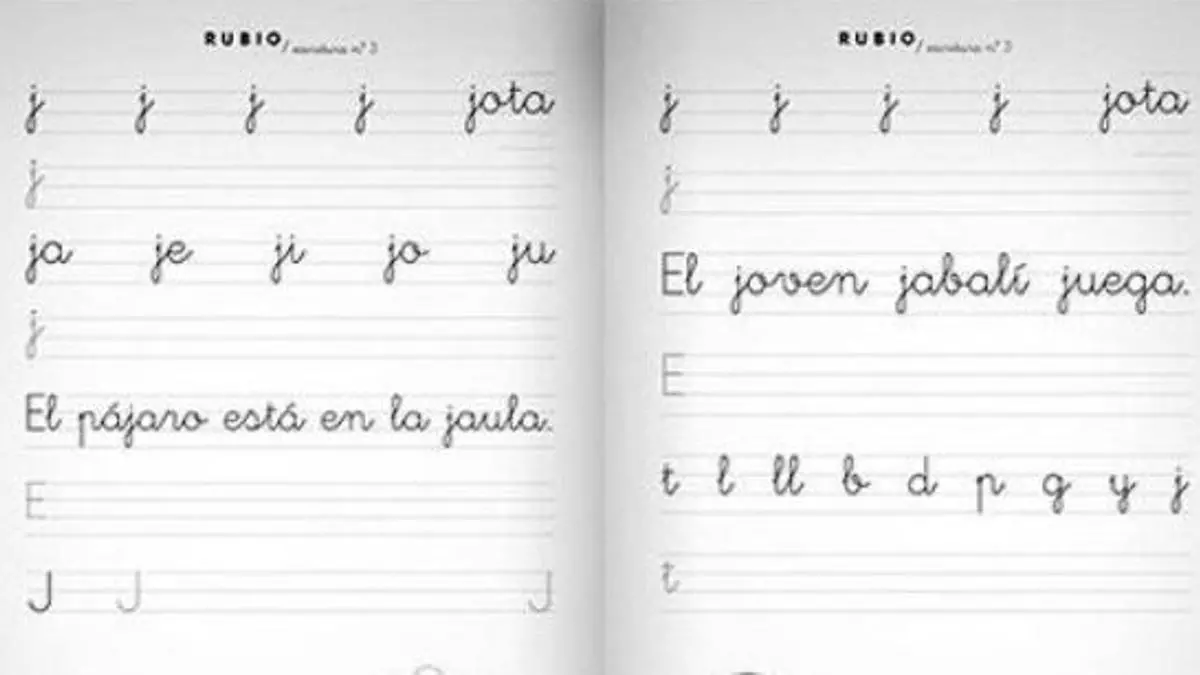 RUBIO/escritura nº 3
j j j j jota
j
ja je ji jo ju
j
El pájaro está en la jaula.
E
J J J
RUBIO/escritura nº 3
j j j j jota
j
El joven jabalí juega.
E
t l ll b d p g y j
t